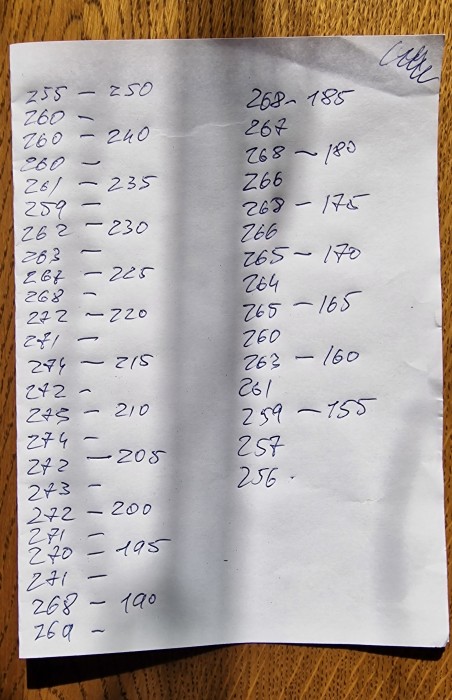 255 - 250
260 -
260 - 240
260 -
261 - 235
259 -
262 - 230
263 -
267 - 225
268 -
272 - 220
271 -
274 - 215
272 -
275 - 210
274 -
272 - 205
273 -
272 - 200
271 -
270 - 195
271 -
268 - 190
269 -
268 - 185
267
268 - 180
266
268 - 175
266
265 - 170
264
265 - 165
260
263 - 160
261
259 - 155
257
256 .